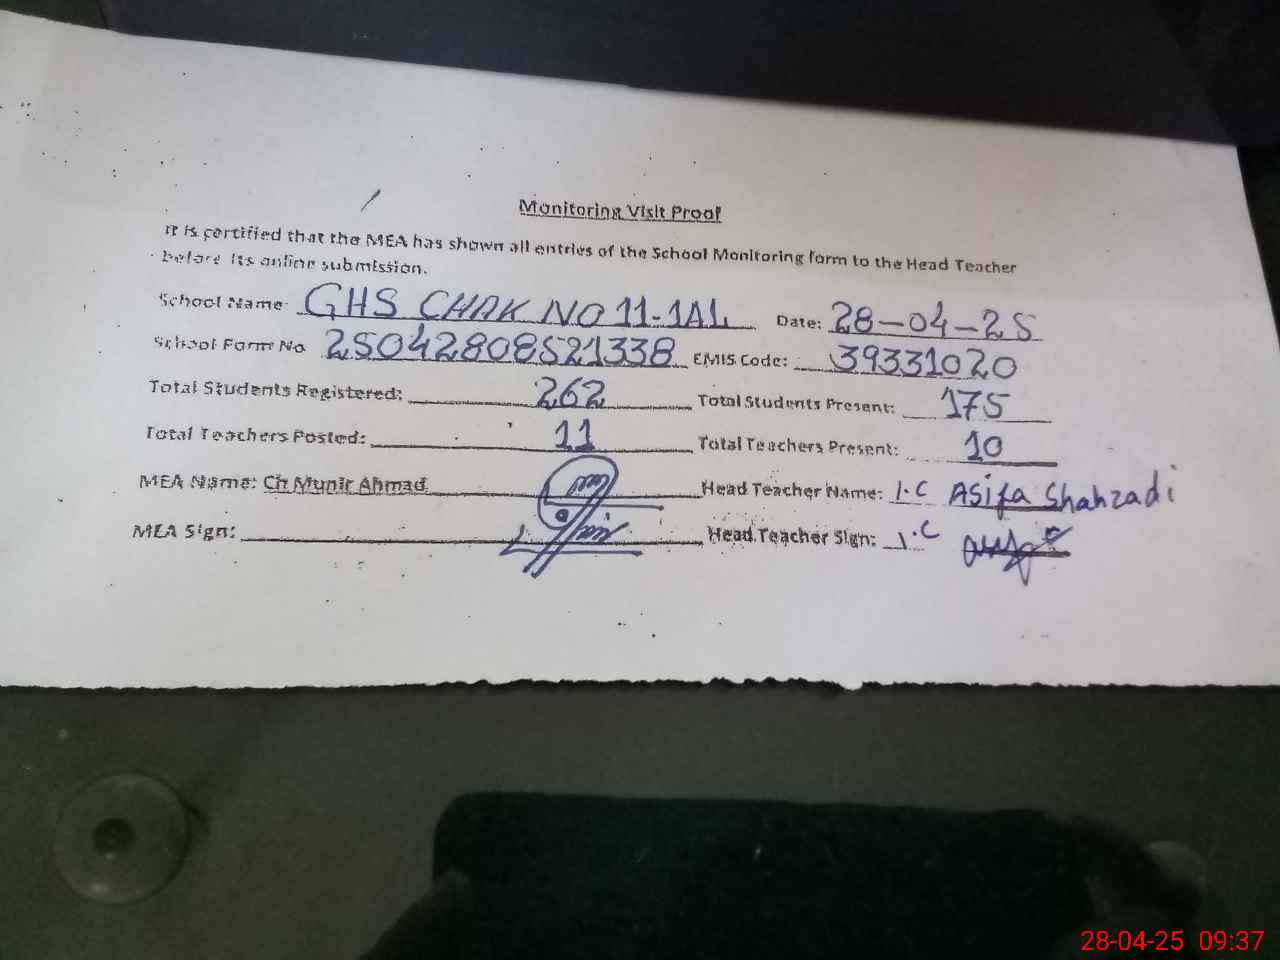 Monitoring Visit Proof
It is certified that the MEA has shown all entries of the School Monitoring form to the Head Teacher
before its online submission.
School Name: GHS CHAK NO 11-1AL Date: 28-04-25
School Form No 25042808521338 EMIS Code: 39331020
Total Students Registered: 262 Total Students Present: 175
Total Teachers Posted: 11 Total Teachers Present: 10
MEA Name: Ch Munir Ahmad Head Teacher Name: I.C Asifa Shahzadi
MEA Sign: Head Teacher Sign: I.C
28-04-25 09:37